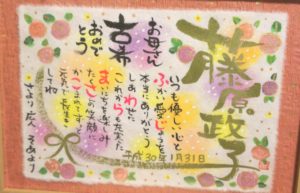 お母さん
古希
おめで
とう
藤原政子
いつも優しい心と
ふかい愛じょうを
本当にありがとう
しあわせ
これからも充実した
まいにちを楽しみ
たくさんの笑顔
かこまれて
元気で長生き
してね
平成30年1月31日